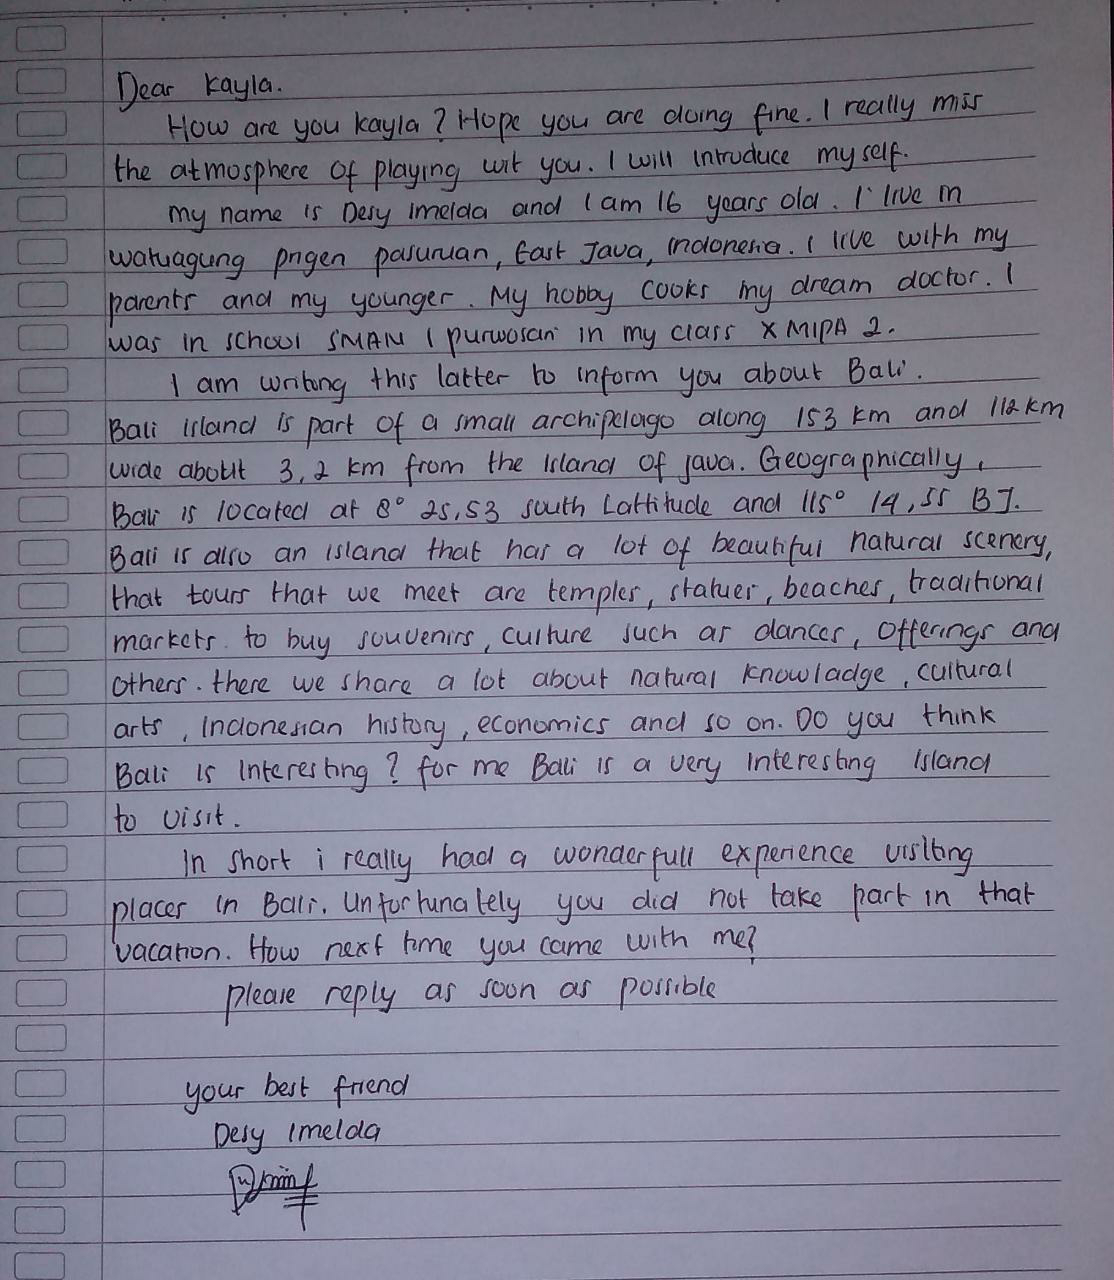 Dear Kayla.
How are you kayla ? Hope you are doing fine. I really miss
the atmosphere of playing wit you. I will introduce my self.
My name is Desy imelda and I am 16 years old. I live in
watuagung prigen pasuruan, East Java, Indonesia. I live with my
parents and my younger. My hobby cooks my dream doctor. I
was in school SMAN 1 purwosari in my class X MIPA 2.
I am writing this latter to inform you about Bali.
Bali island is part of a small archipelago along 153 km and 112 km
wide about 3,2 km from the Island of java. Geographically,
Bali is located at 8° 25,53 south Lattitude and 115° 14,55 BJ.
Bali is also an island that has a lot of beautiful natural scenery,
that tours that we meet are temples, statues, beaches, traditional
markets. to buy souvenirs, culture such as dances, offerings and
others. there we share a lot about natural knowladge, cultural
arts, Indonesian history, economics and so on. Do you think
Bali is Interesting ? for me Bali is a very Interesting Island
to visit.
In short i really had a wonderfull experience visiting
places in Bali. Unfortunately you did not take part in that
vacation. How next time you came with me?
please reply as soon as possible
your best friend
Desy Imelda